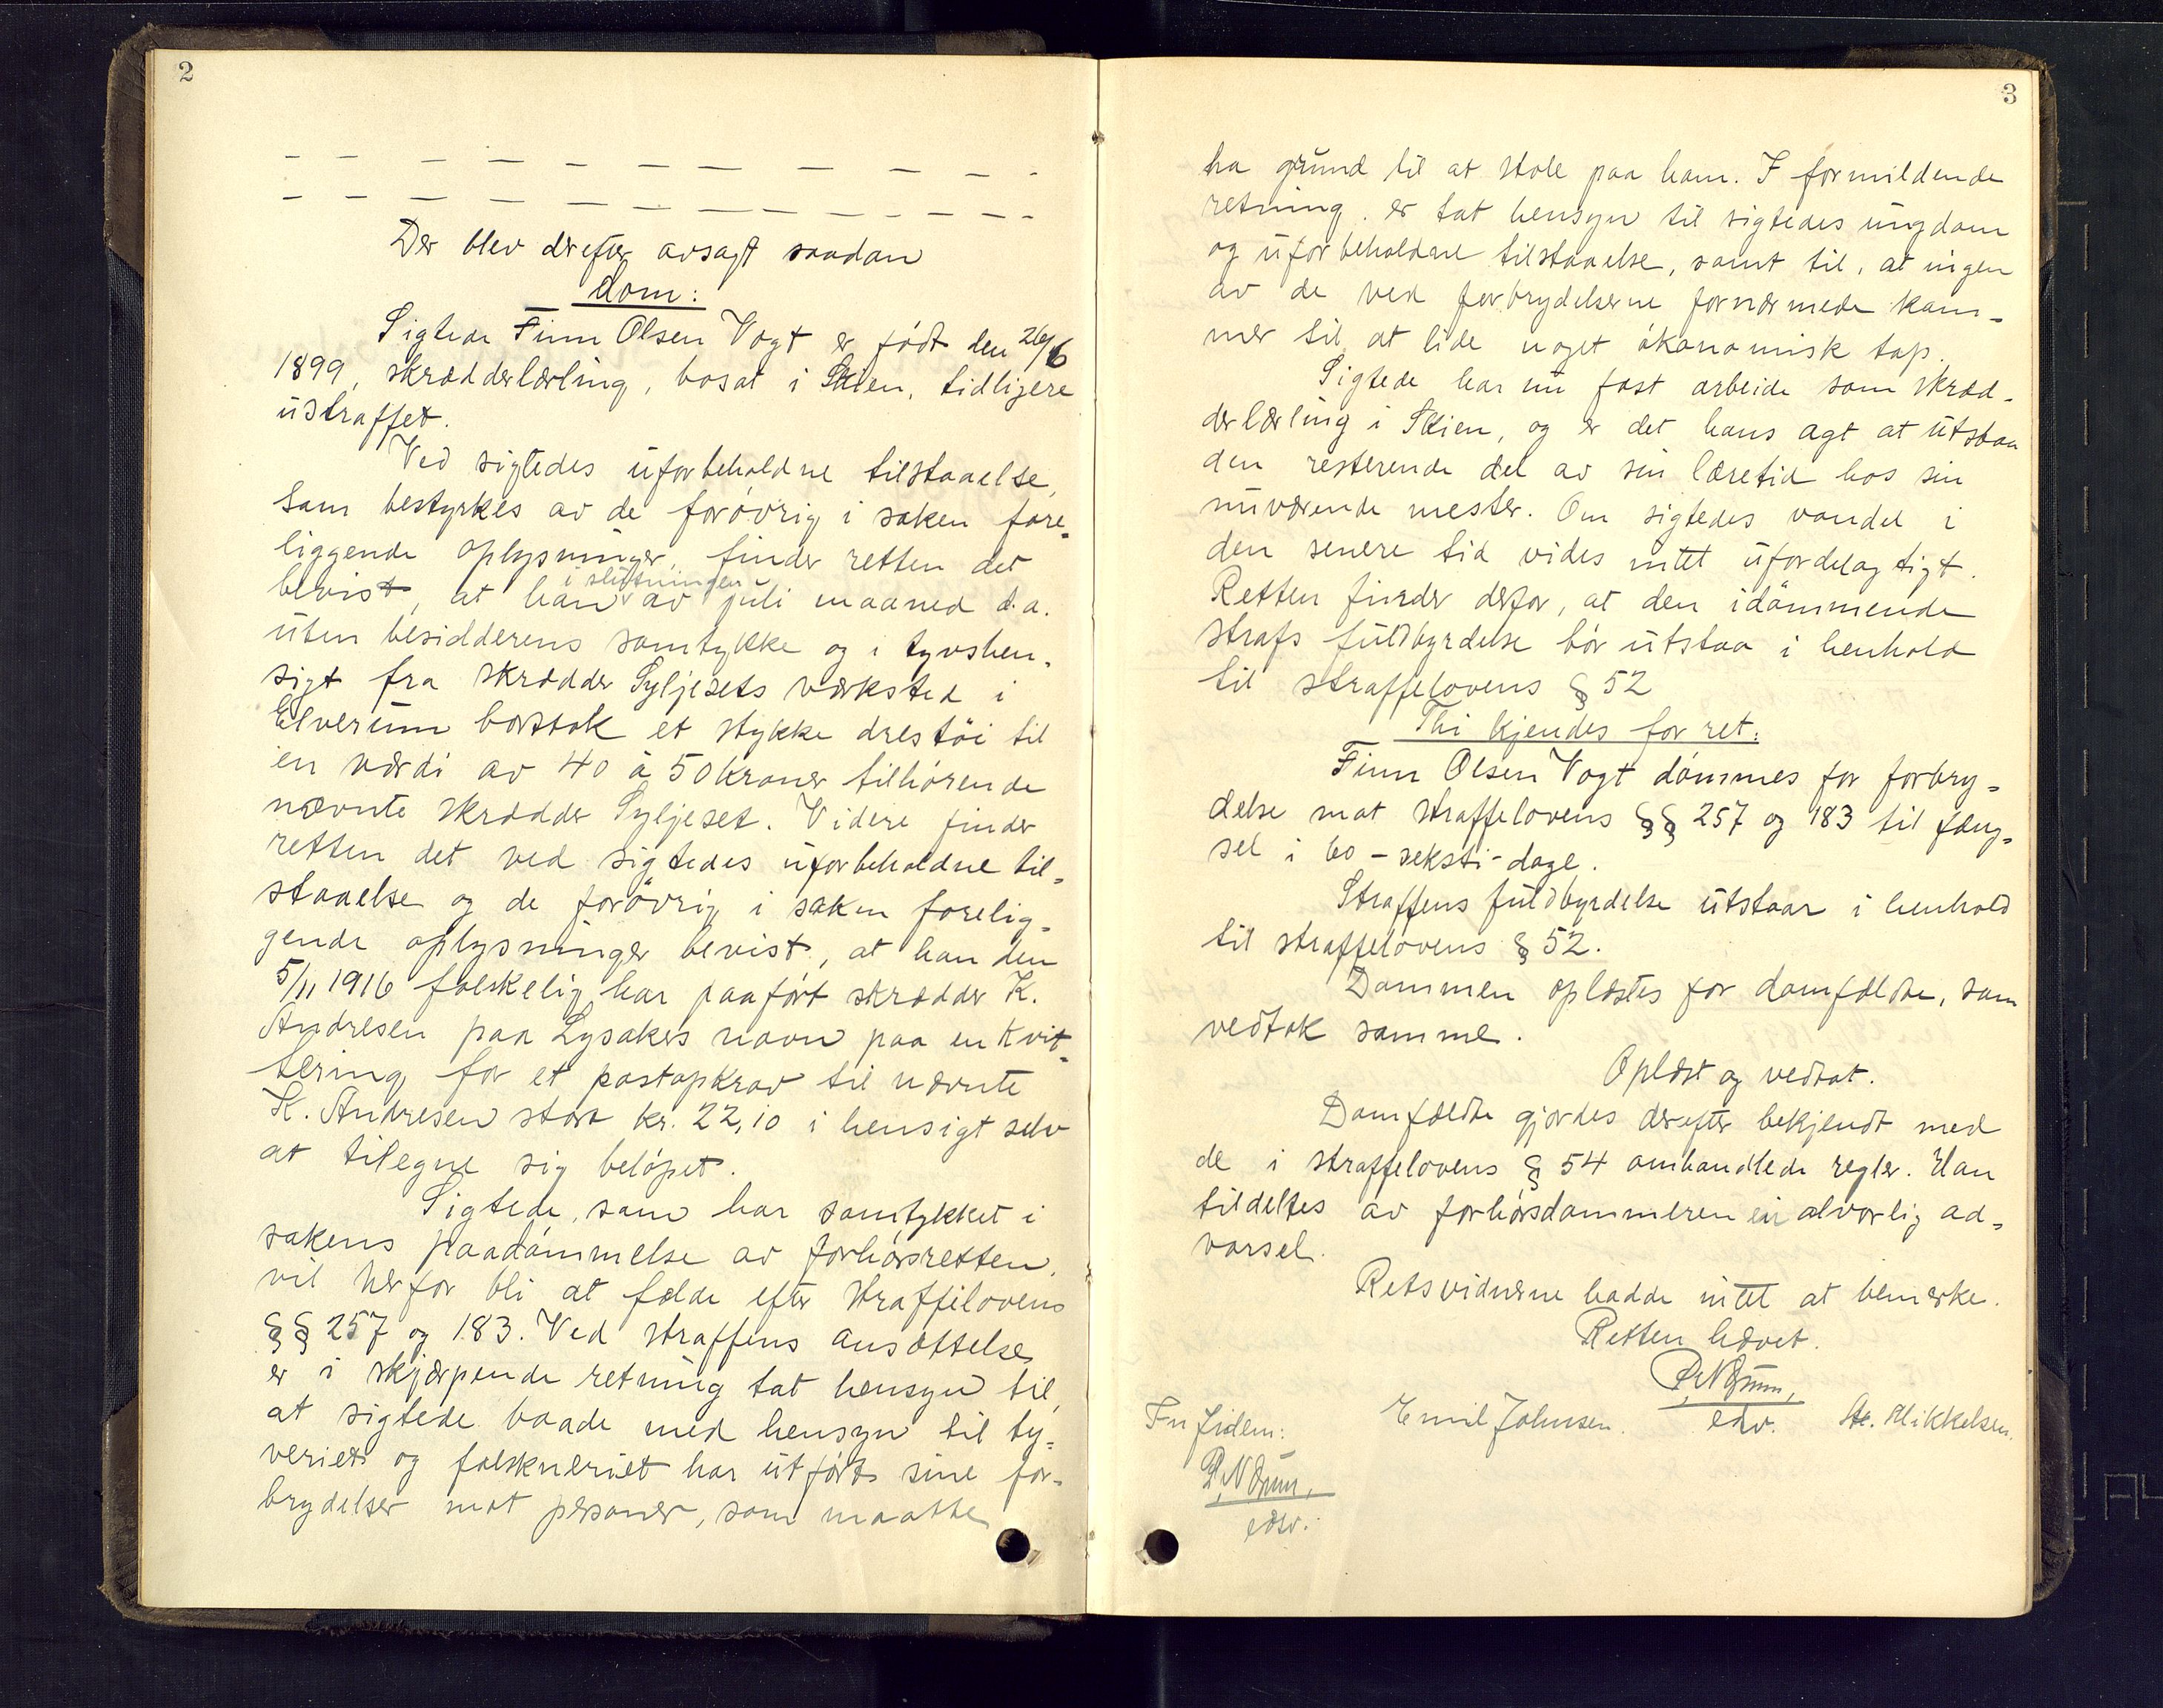 2
— — — — — — — — — — -
— — — — — — — — — — — -
Der blev derefter avsagt saadan
dom:
Sigtede Finn Olsen Vogt er født den 26/6
1899, skrædderlærling, bosat i Skien, tidligere
ustraffet.
Ved sigtedes uforbeholdne tilstaaelse,
som bestyrkes av de forøvrig i saken fore=
liggende oplysninger, finder retten det
i slutningen
bevist, at han av juli maaned d.a.
uten besidderens samtykke og i tyvshen-
sigt fra skrædder Syljesets verksted i
Elverum borttok et stykke drestøi til
en værdi av 40 à 50 kroner tilhørende
nævnte skrædder Syljeset. Videre finder
retten det ved sigtedes uforbeholdne til=
staaelse og de forøvrig i saken forelig-
gende oplysninger bevist, at han den
5/11 1916 falskelig har paaført skrædder K.
Andresen paa Lysakers navn paa en kvit=
tering for et postopkrav til nævnte
K. Andresen stort kr. 22,10 i hensigt selv
at tilegne sig beløpet.
Sigtede, som har samtykket i
sakens paadømmelse av forhørsretten,
vil herfor bli at fælde efter straffelovens
§§ 257 og 183. Ved straffens ansættelse
er i skjærpende retning tat hensyn til,
at sigtede baade med hensyn til ty=
veriet og falskneriet har utført sine for-
brydelser mot personer, som maatte
3
ha grund til at stole paa ham. I formildende
retning er tat hensyn til sigtedes ungdom
og uforbeholdne tilstaaelse, samt til, at ingen
av de ved forbrydelserne fornærmede kom-
mer til at lide noget økonomisk tap.
Sigtede har nu fast arbeide som skræd-
derlærling i Skien, og er det hans agt at utstaa
den resterende del av sin læretid hos sin
nuværende mester. Om sigtedes vandel i
den senere tid vides intet ufordelagtigt.
Retten finder derfor, at den idømmende
strafs fuldbyrdelse bør utstaa i henhold
til straffelovens § 52
Thi kjendes for ret:
Finn Olsen Vogt dømmes for forbry=
delse mot straffelovens §§ 257 og 183 til fæng=
sel i 60 - seksti - dage.
Straffens fuldbyrdelse utstaar i henhold
til straffelovens § 52.
Dommen oplæstes for domfældte, som
vedtok samme.
Oplæst og vedtat.
Domfældte gjordes derefter bekjendt med
de i straffelovens § 54 omhandlede regler. Han
tildeltes av forhørsdommeren en alvorlig ad=
varsel.
Retsvidnerne hadde intet at bemerke.
Retten hævet.
Emil Johnsen. edsv. Mikkelsen.
edsv.